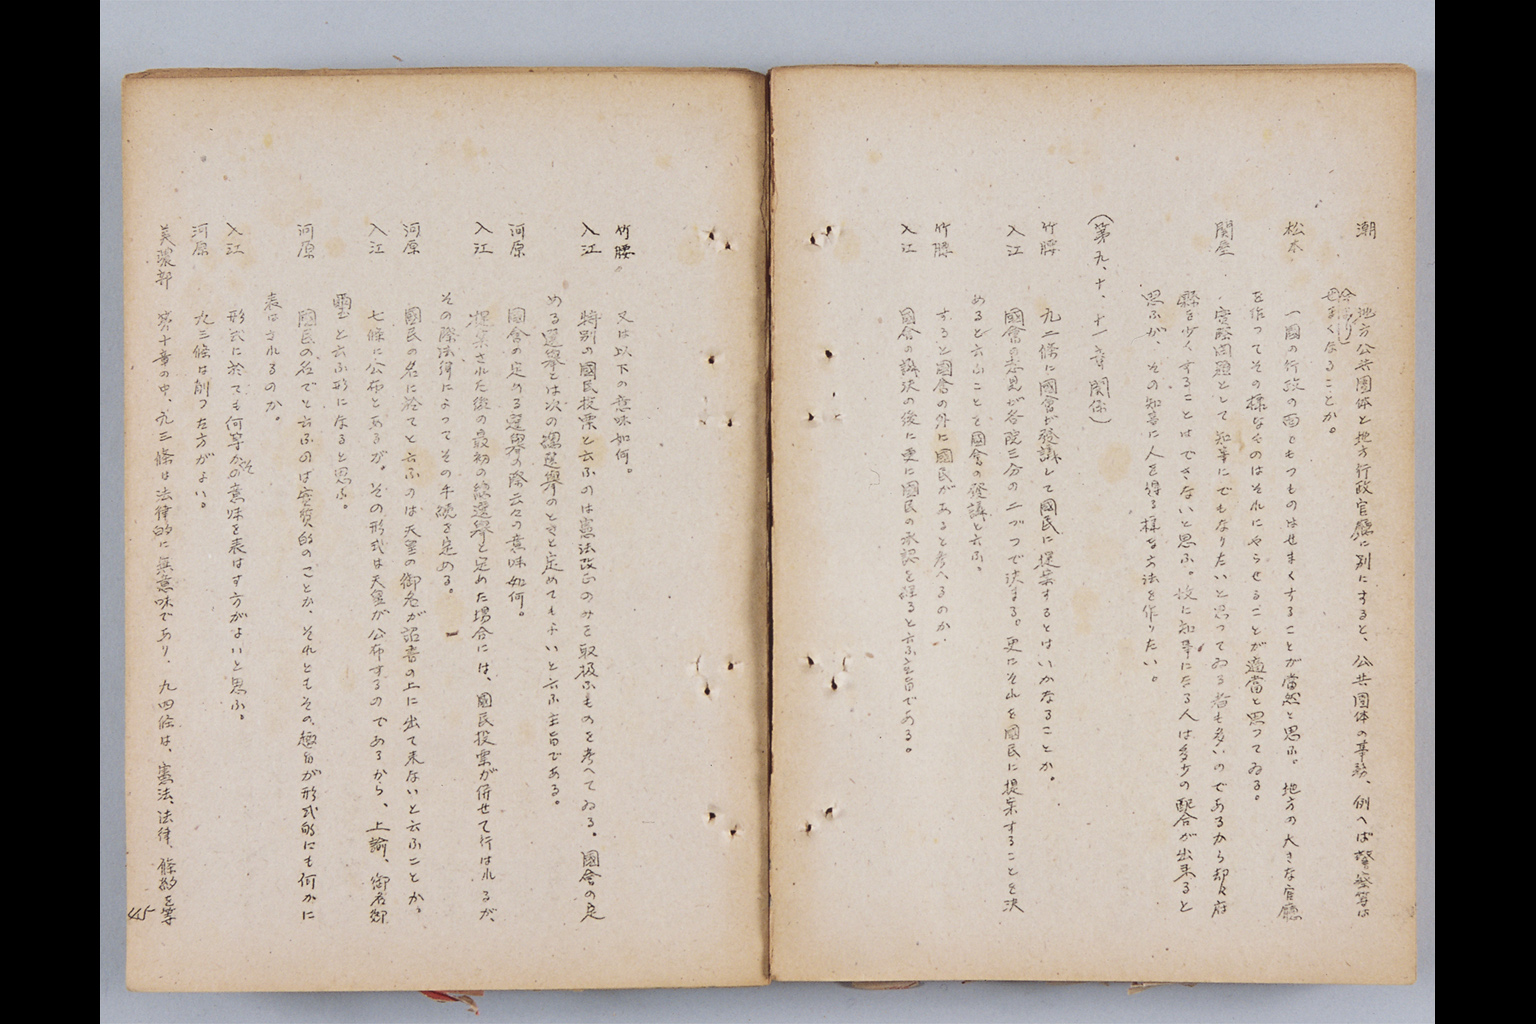 潮
地方公共團体と地方行政官廳に別にすると、公共團体の事務、例へば警察等は
せまくなることか。
松本
一國の行政の面でもつものはせまくすることが當然と思ふ。地方の大きな官廳
を作つてその様なものはそれにやらせることが適當と思つてゐる。
関屋
実際問題として知事にでもなりたいと思つてゐる者も多いのであるから却々府
縣を少くすることはできないと思ふ。故に知事になる人は多少の配合が出来ると
思ふが、その知事に人を得る様な方法を作りたい。
(第九、十、十一章関係)
竹腰
九二條に國會が發議して國民に提案するとはいかなることか。
入江
國會の意見が各院三分の二づつで決まる。更にそれを國民に提案することを決
めると云ふことを國會の發議と云ふ。
竹腰
すると國會の外に國民があると考へるのか、
入江
國會の議決の後に更に國民の承認を得ると云ふ主旨である。
竹腰
又は以下の意味如何。
入江
特別の國民投票と云ふのは憲法改正のみを取扱ふものを考へてゐる。國會の定
める選擧とは次の總選擧のときと定めてもよいと云ふ主旨である。
河原
國會の定める選擧の際云々の意味如何。
入江
提案された後の最初の總選擧と定めた場合には、國民投票が併せて行はれるが、
その際法律によつてその手續を定める。
河原
國民の名に於てと云ふのは天皇の御名が詔書の上に出て来ないと云ふことか。
入江
七條に公布とあるが、その形式は天皇が公布するのであるから、上諭、御名御
璽と云ふ形になると思ふ。
河原
國民の名でと云ふのは実質的のことか、それともその趣旨が形式的にも何かに
表はされるのか。
入江
形式に於ても何等かの意味を表はす方がよいと思ふ。
河原
九三條は削つた方がよい。
美濃部
第十章の中、九三條は法律的に無意味であり、九四條は、憲法、法律、條約を等
445